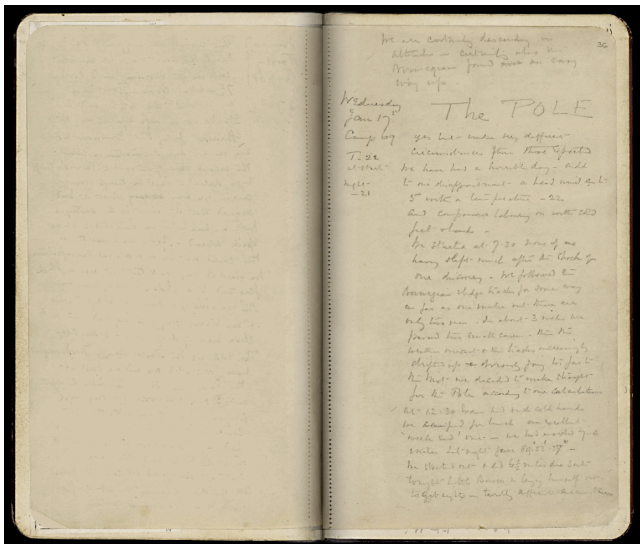 36
We are certainly descending in
altitude - certainly also the
Norwegians found an easy
way up.
Wednesday
Jan 17
Camp 69
T -22
at start
Night
-21
The POLE
Yes but under very different
circumstances from those expected
We have had a horrible day - add
to our disappointment a head wind 4 to
5 with a temperature -22
and companions labouring on with cold
feet & hands -
We started at 7.30 none of us
having slept much after the shock of
our discovery - We followed the
Norwegian sledge tracks for some way
as far as we make out there are
only two men. In about 3 miles we
passed two small cairns. Then the
weather overcast & the tracks increasingly
drifted up & obviously going too far to
the West we decided to make straight
for the Pole according to our calculations
At 12.30 Evans had such cold hands
we camped for lunch - an excellent
'week end' one - we had marched 7.4
miles Lat sight gave 89° 53' 37" -
We started out & did 6½ miles due South
Tonight little Bowers is laying himself out
to get sights in terribly difficult circumstances